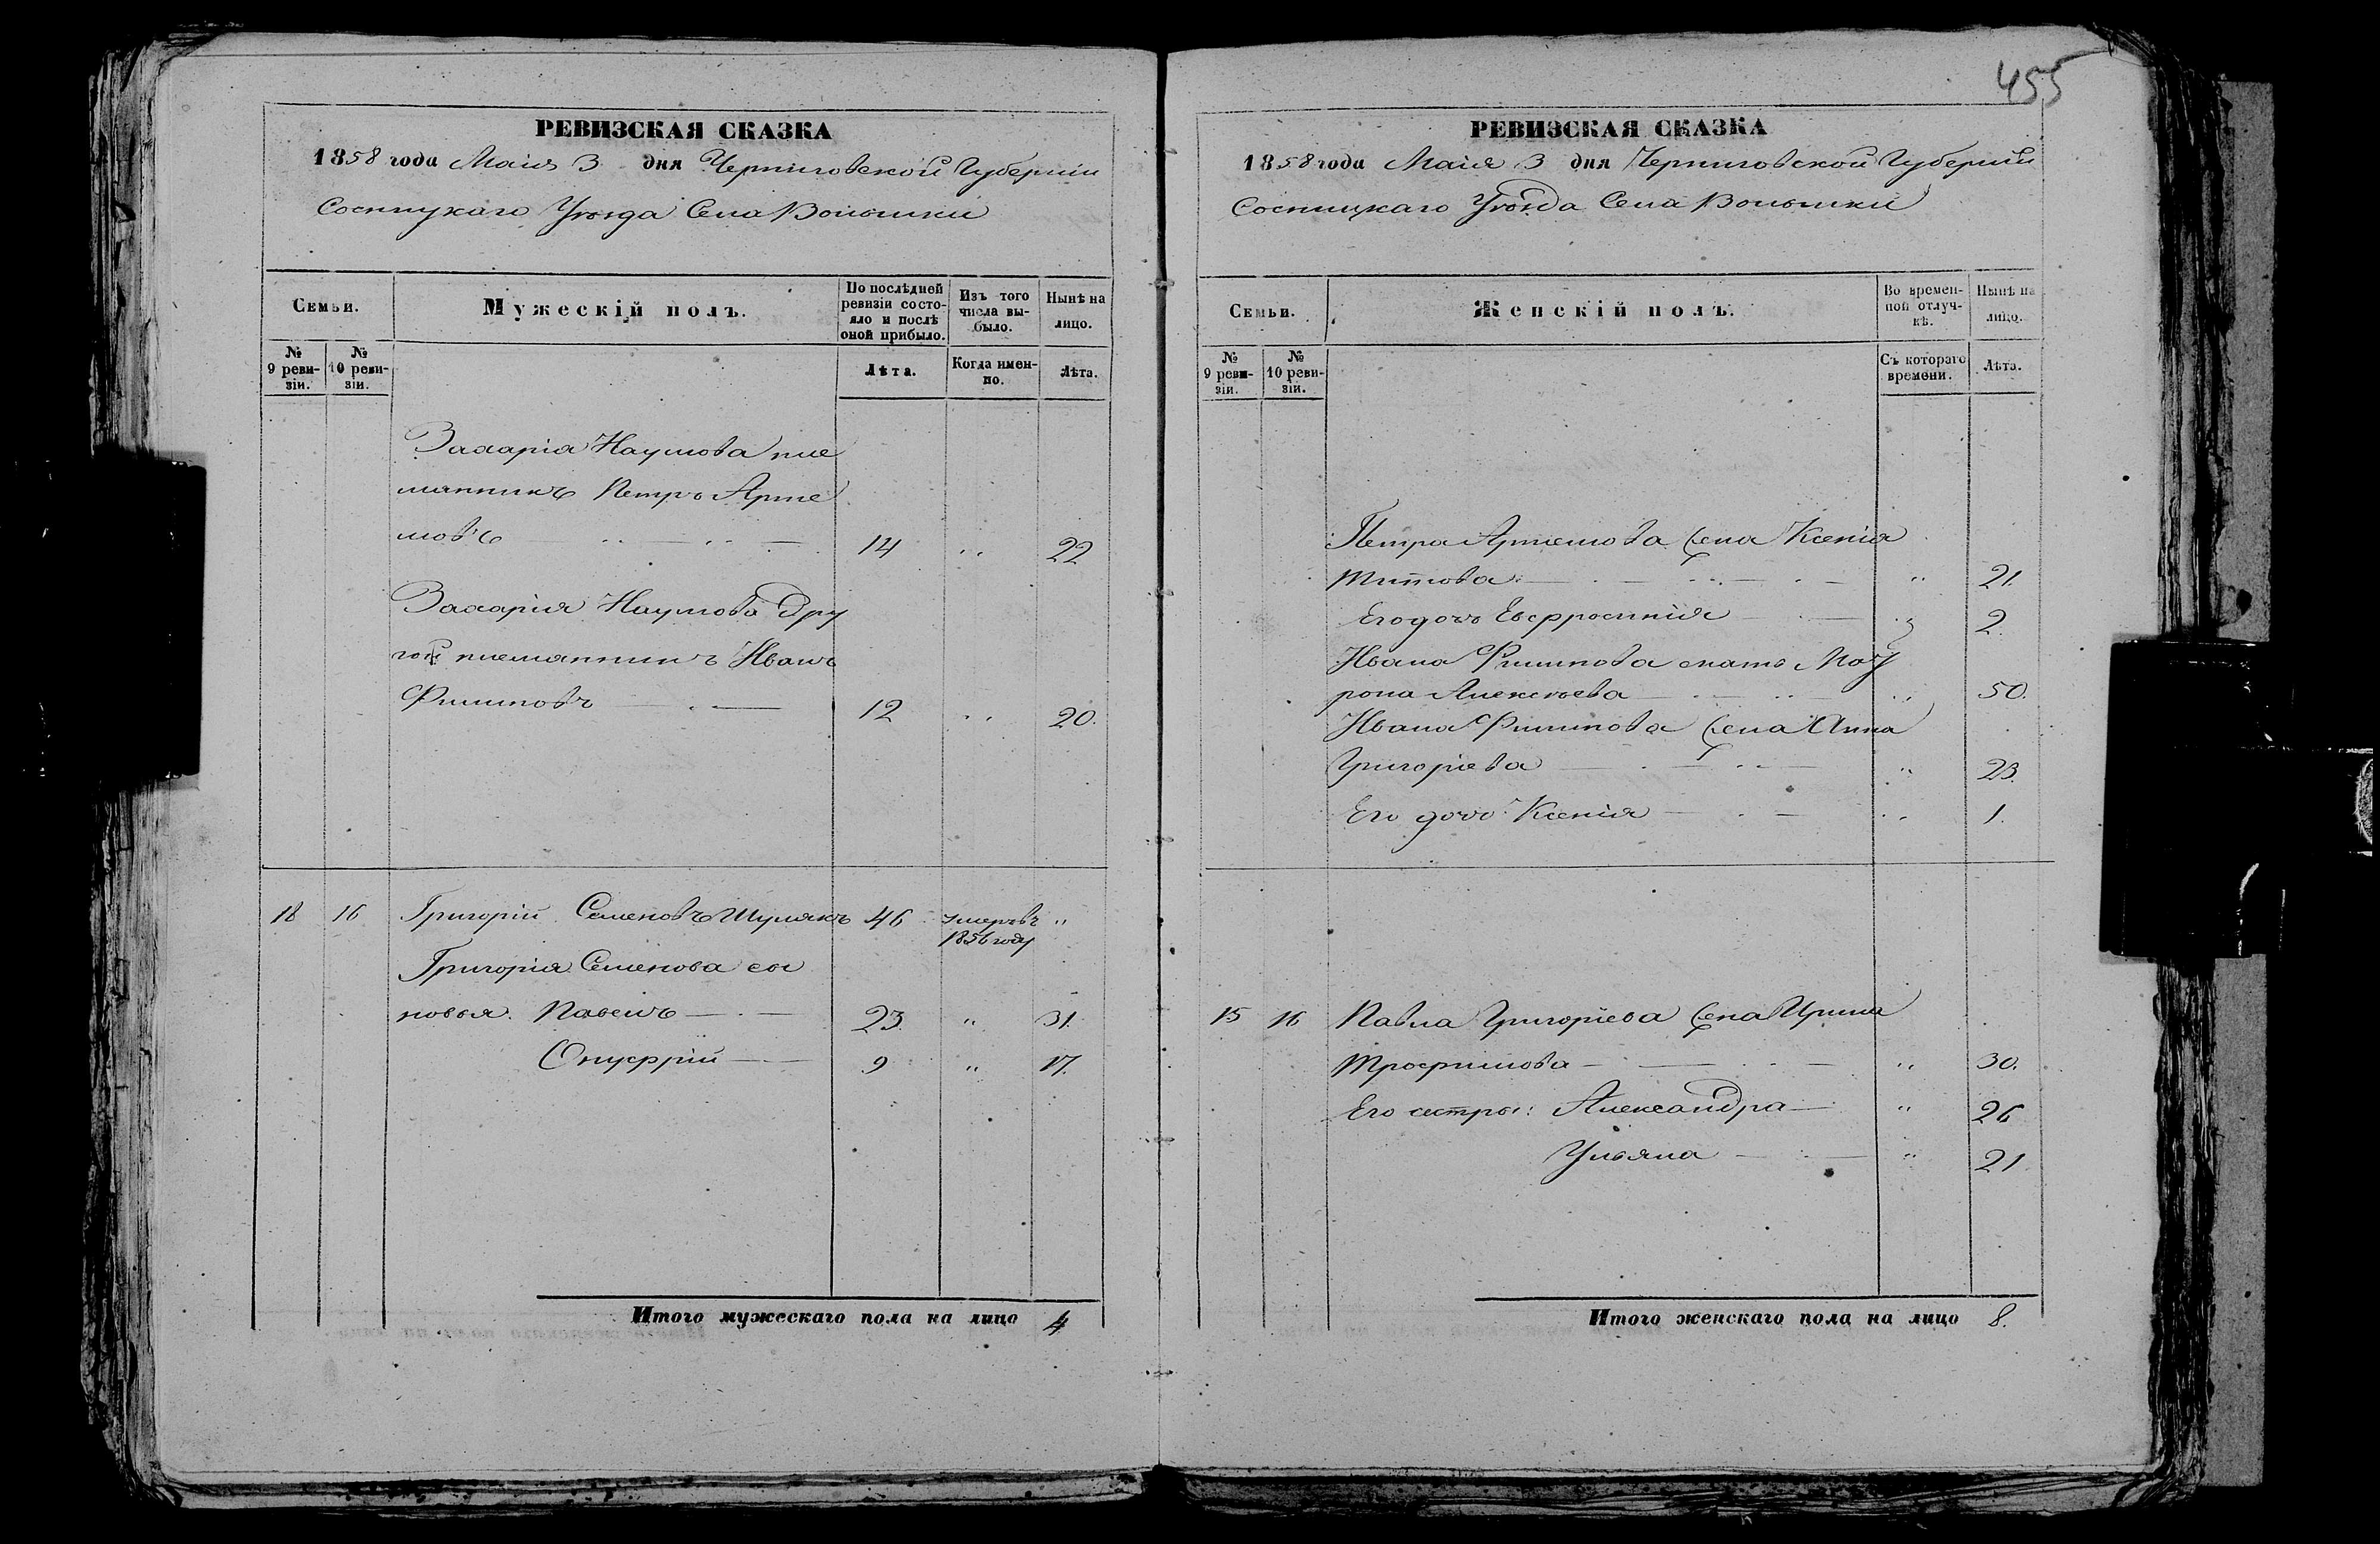 455
РЕВИЗСКАЯ СКАЗКА
1858 года Маія 3 дня Черниговской Губерніи
Сосницкаго Уѣзда Села Волынки
Семьи.
Мужескій полъ.
По послѣдней ревизіи состояло и послѣ оной прибыло.
Изъ того числа выбыло.
Нынѣ на лицо.
№ 9 ревизіи.
№ 10 ревизіи.
Лѣта.
Когда именно.
Лѣта.
Захарія Наумова пле
мянникъ Петръ Арте
мовъ 14 " 22
Захарія Наумова дру
гой племянникъ Иванъ
Филиповъ 12 " 20.
18 16 Григорій Семеновъ Шулякъ 46 умеръ въ "
1856 году
Григорія Семенова сы
новья. Павелъ 23. " 31.
Онуфрій 9 " 17.
Итого мужескаго пола на лицо 4
РЕВИЗСКАЯ СКАЗКА
1858 года Маія 3 дня Черниговской Губерніи
Сосницкаго Уѣзда Села Волынки
Семьи.
Женскій полъ.
Во временной отлучкѣ.
Нынѣ на лицо.
№ 9 ревизіи.
№ 10 ревизіи.
Съ котораго времени.
Лѣта.
Петра Артемова жена Ксенія
Титова " 21.
Его дочь Евфросинія " 2.
Ивана Филипова мать Мат
рона Алексѣева " 50.
Ивана Филипова жена Анна
Григоріева " 23.
Его дочь Ксенія " 1.
15 16 Павла Григоріева жена Ирина
Трофимова " 30.
Его сестры: Александра " 26
Ульяна " 21
Итого женскаго пола на лицо 8.